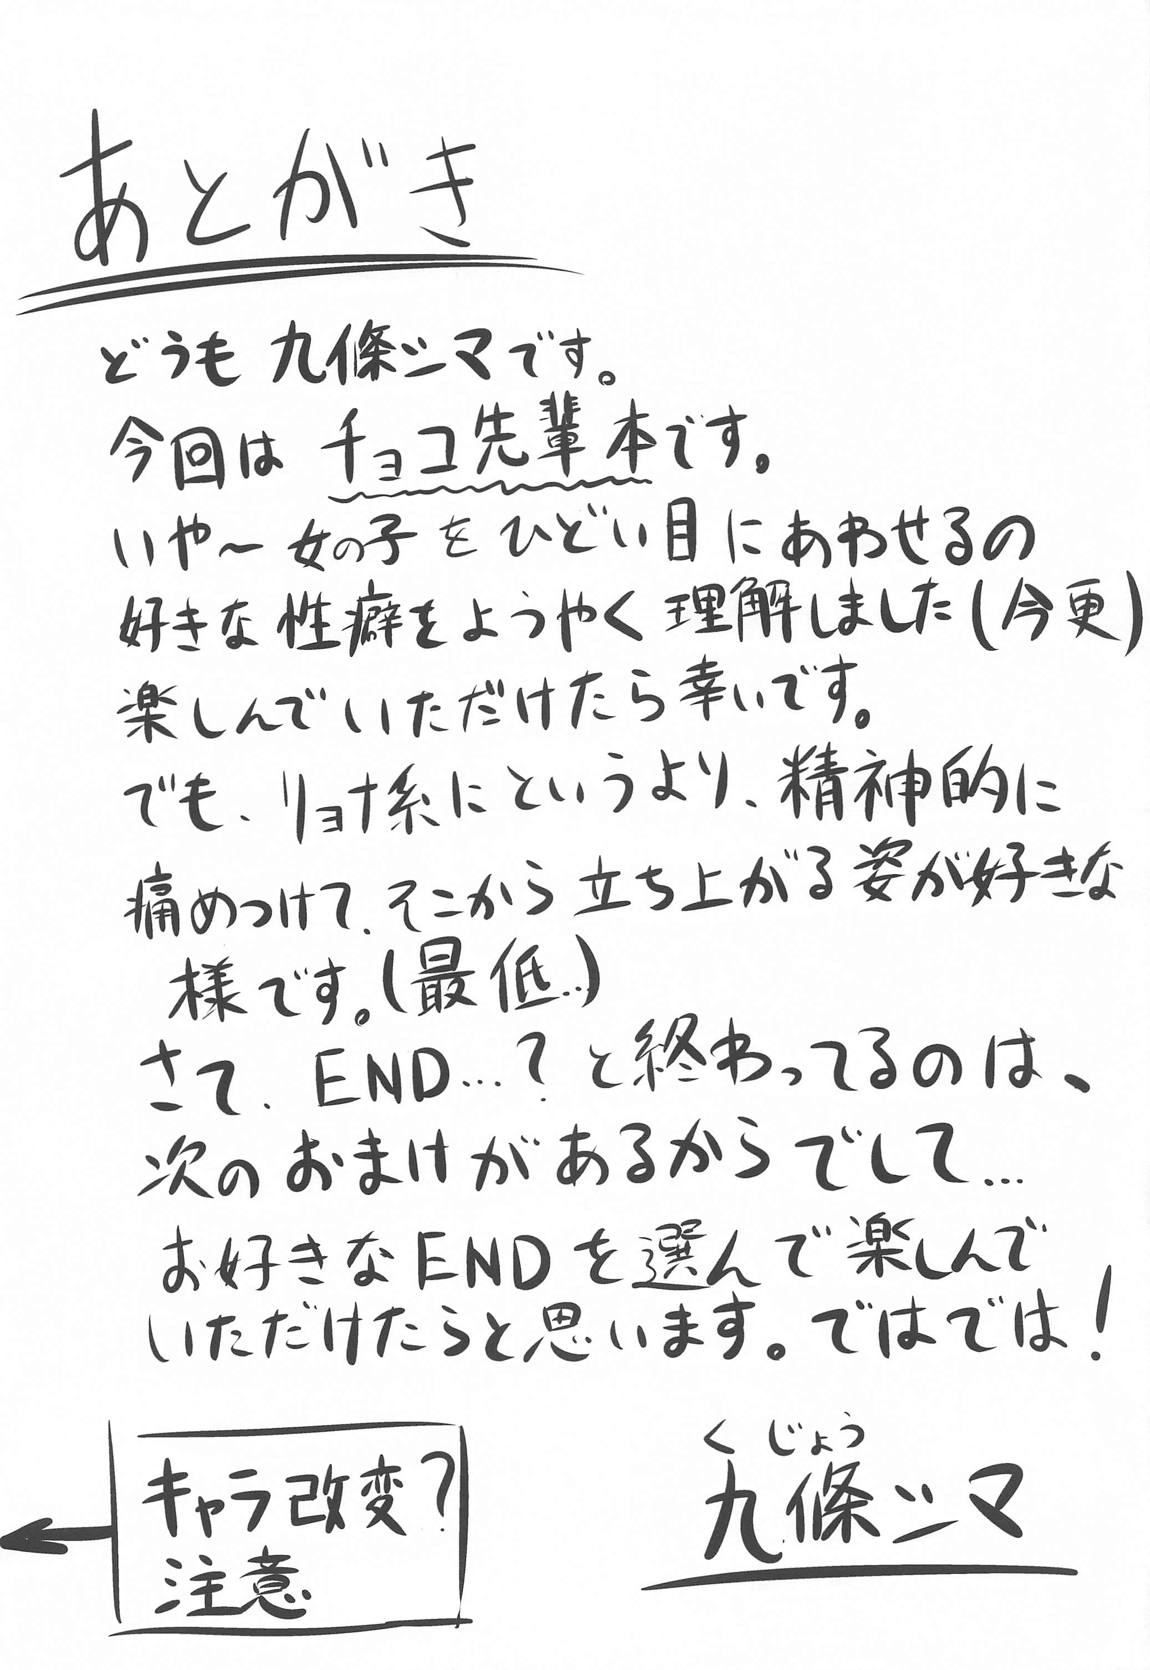 あとがき
どうも 九條シマです。
今回は チョコ先輩本です。
いや〜 女の子をひどい目にあわせるの
好きな性癖をようやく理解しました(今更)
楽しんでいただけたら幸いです。
でも、リョナ系にというより、精神的に
痛めつけて、そこから立ち上がる姿が好きな
様です。(最低…)
さて、END…？と終わってるのは、
次のおまけがあるからでして…
お好きなENDを選んで楽しんで
いただけたらと思います。ではでは！
キャラ改変？
注意
くじょう
九條シマ